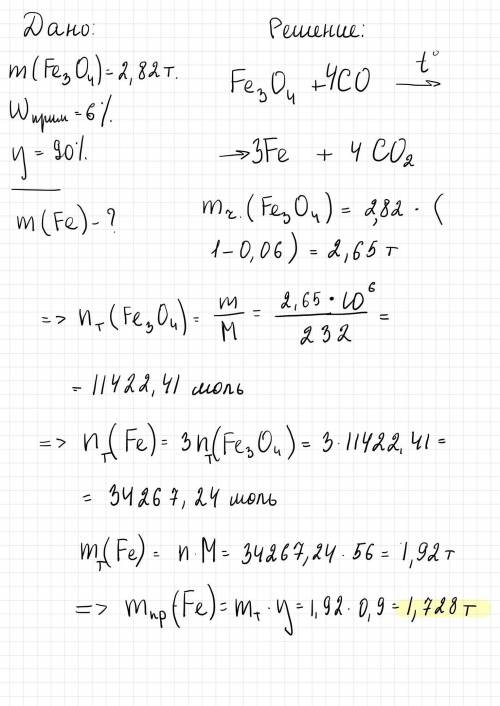 Дано:
m(Fe₃O₄)=2,82 т.
Wприм=6%.
y = 90%.
m(Fe)-?
Решение:
Fe₃O₄ +4CO t° →
→3Fe + 4 CO₂
mч.(Fe₃O₄) = 2,82 · (
1-0,06) = 2,65 т
=> nт(Fe₃O₄) = m/M = 2,65·10⁶/232 =
= 11422,41 моль
=> nт(Fe) = 3nт(Fe₃O₄) = 3·11422,41 =
= 34267,24 моль
mт(Fe) = n·M = 34267,24·56 = 1,92 т
=> mпр(Fe) = mт·y = 1,92·0,9 = 1,728 т